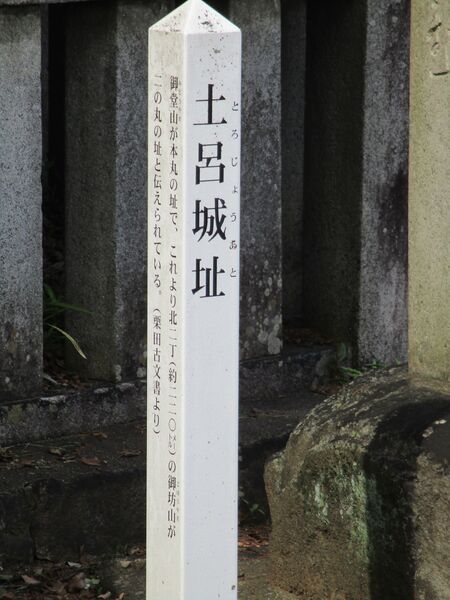 土呂城址
とろじょうあと
御堂山が本丸の址で、これより北二丁(約二二〇メートル)の御坊山が
二の丸の址と伝えられている。(栗田古文書より)